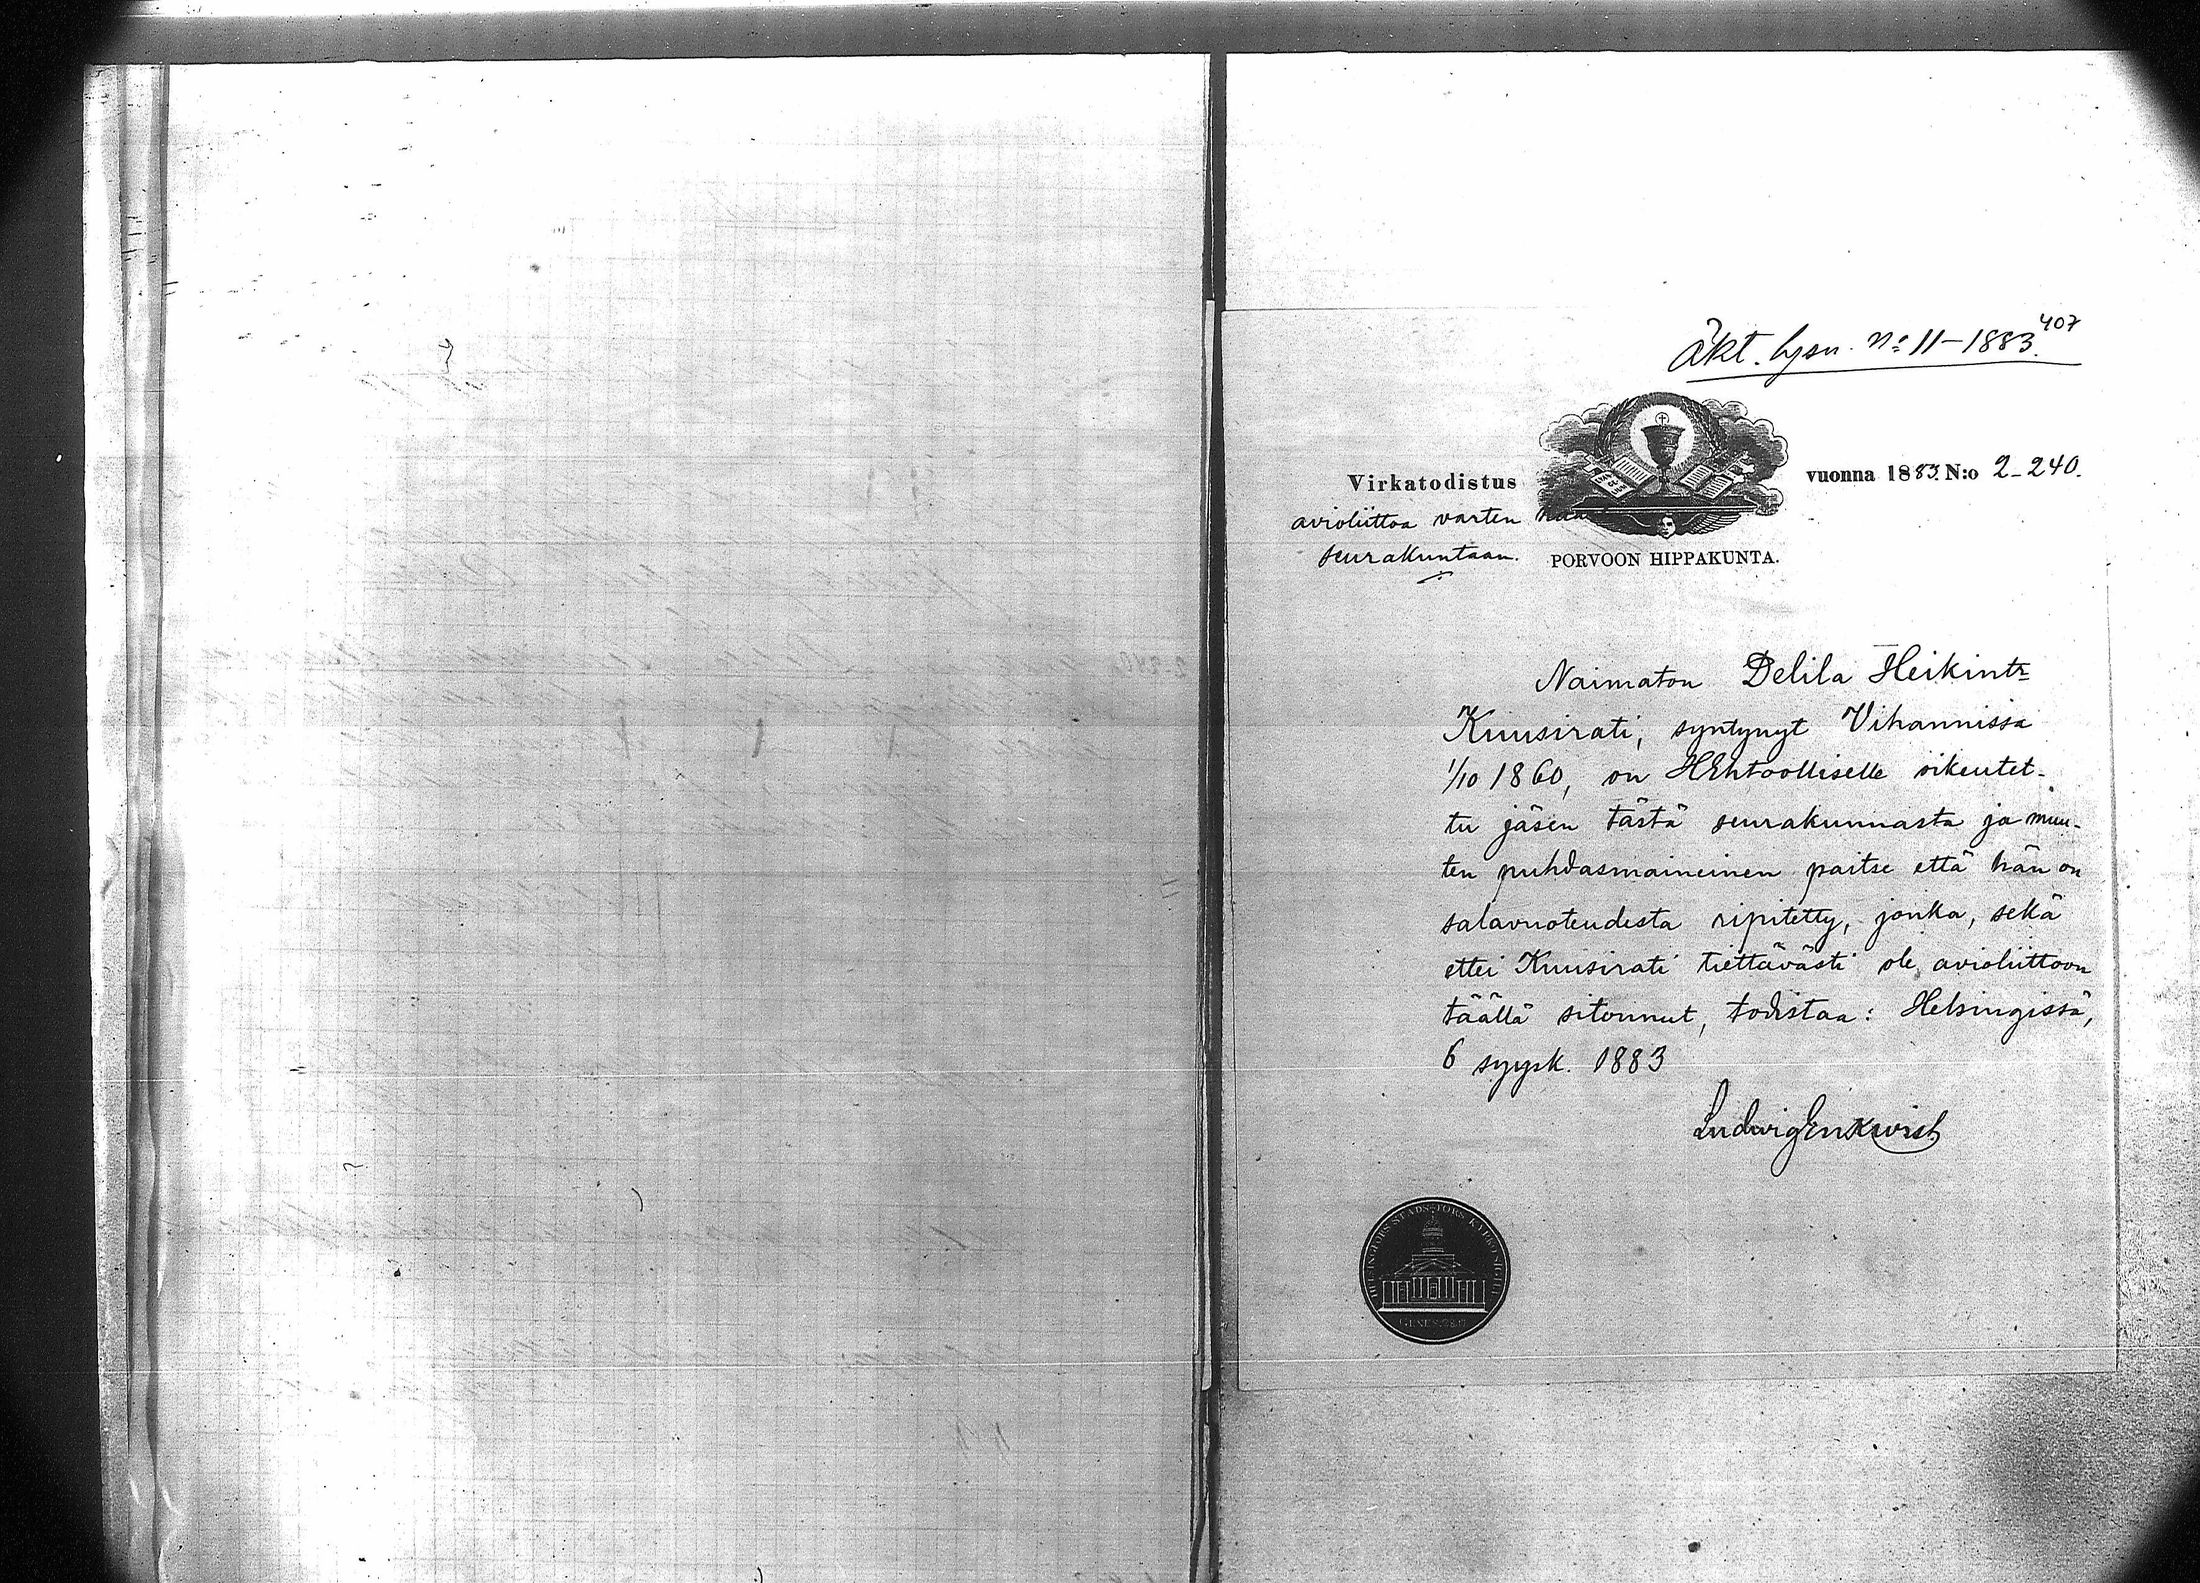 407
Äkt. lysn. No 11-1883.
Virkatodistus
vuonna 1883. N:o 2-240.
avioliittoa varten
seurakuntaan.
PORVOON HIPPAKUNTA.
Naimaton Delila Heikintr
Kuusirati, syntynyt Vihannissa
1/10 1860, on HEhtoolliselle oikeutet-
tu jäsen tästä seurakunnasta ja muu-
ten puhdasmaineinen paitse että hän on
salavuoteudesta ripitetty, jonka, sekä
ettei Kuusirati tiettävästi ole avioliittoon
täällä sitounut, todistaa: Helsingissä,
6 syysk. 1883
Ludvig Enkvist
HELSINGFORS STADS FÖRS. KYRKO SIGILL